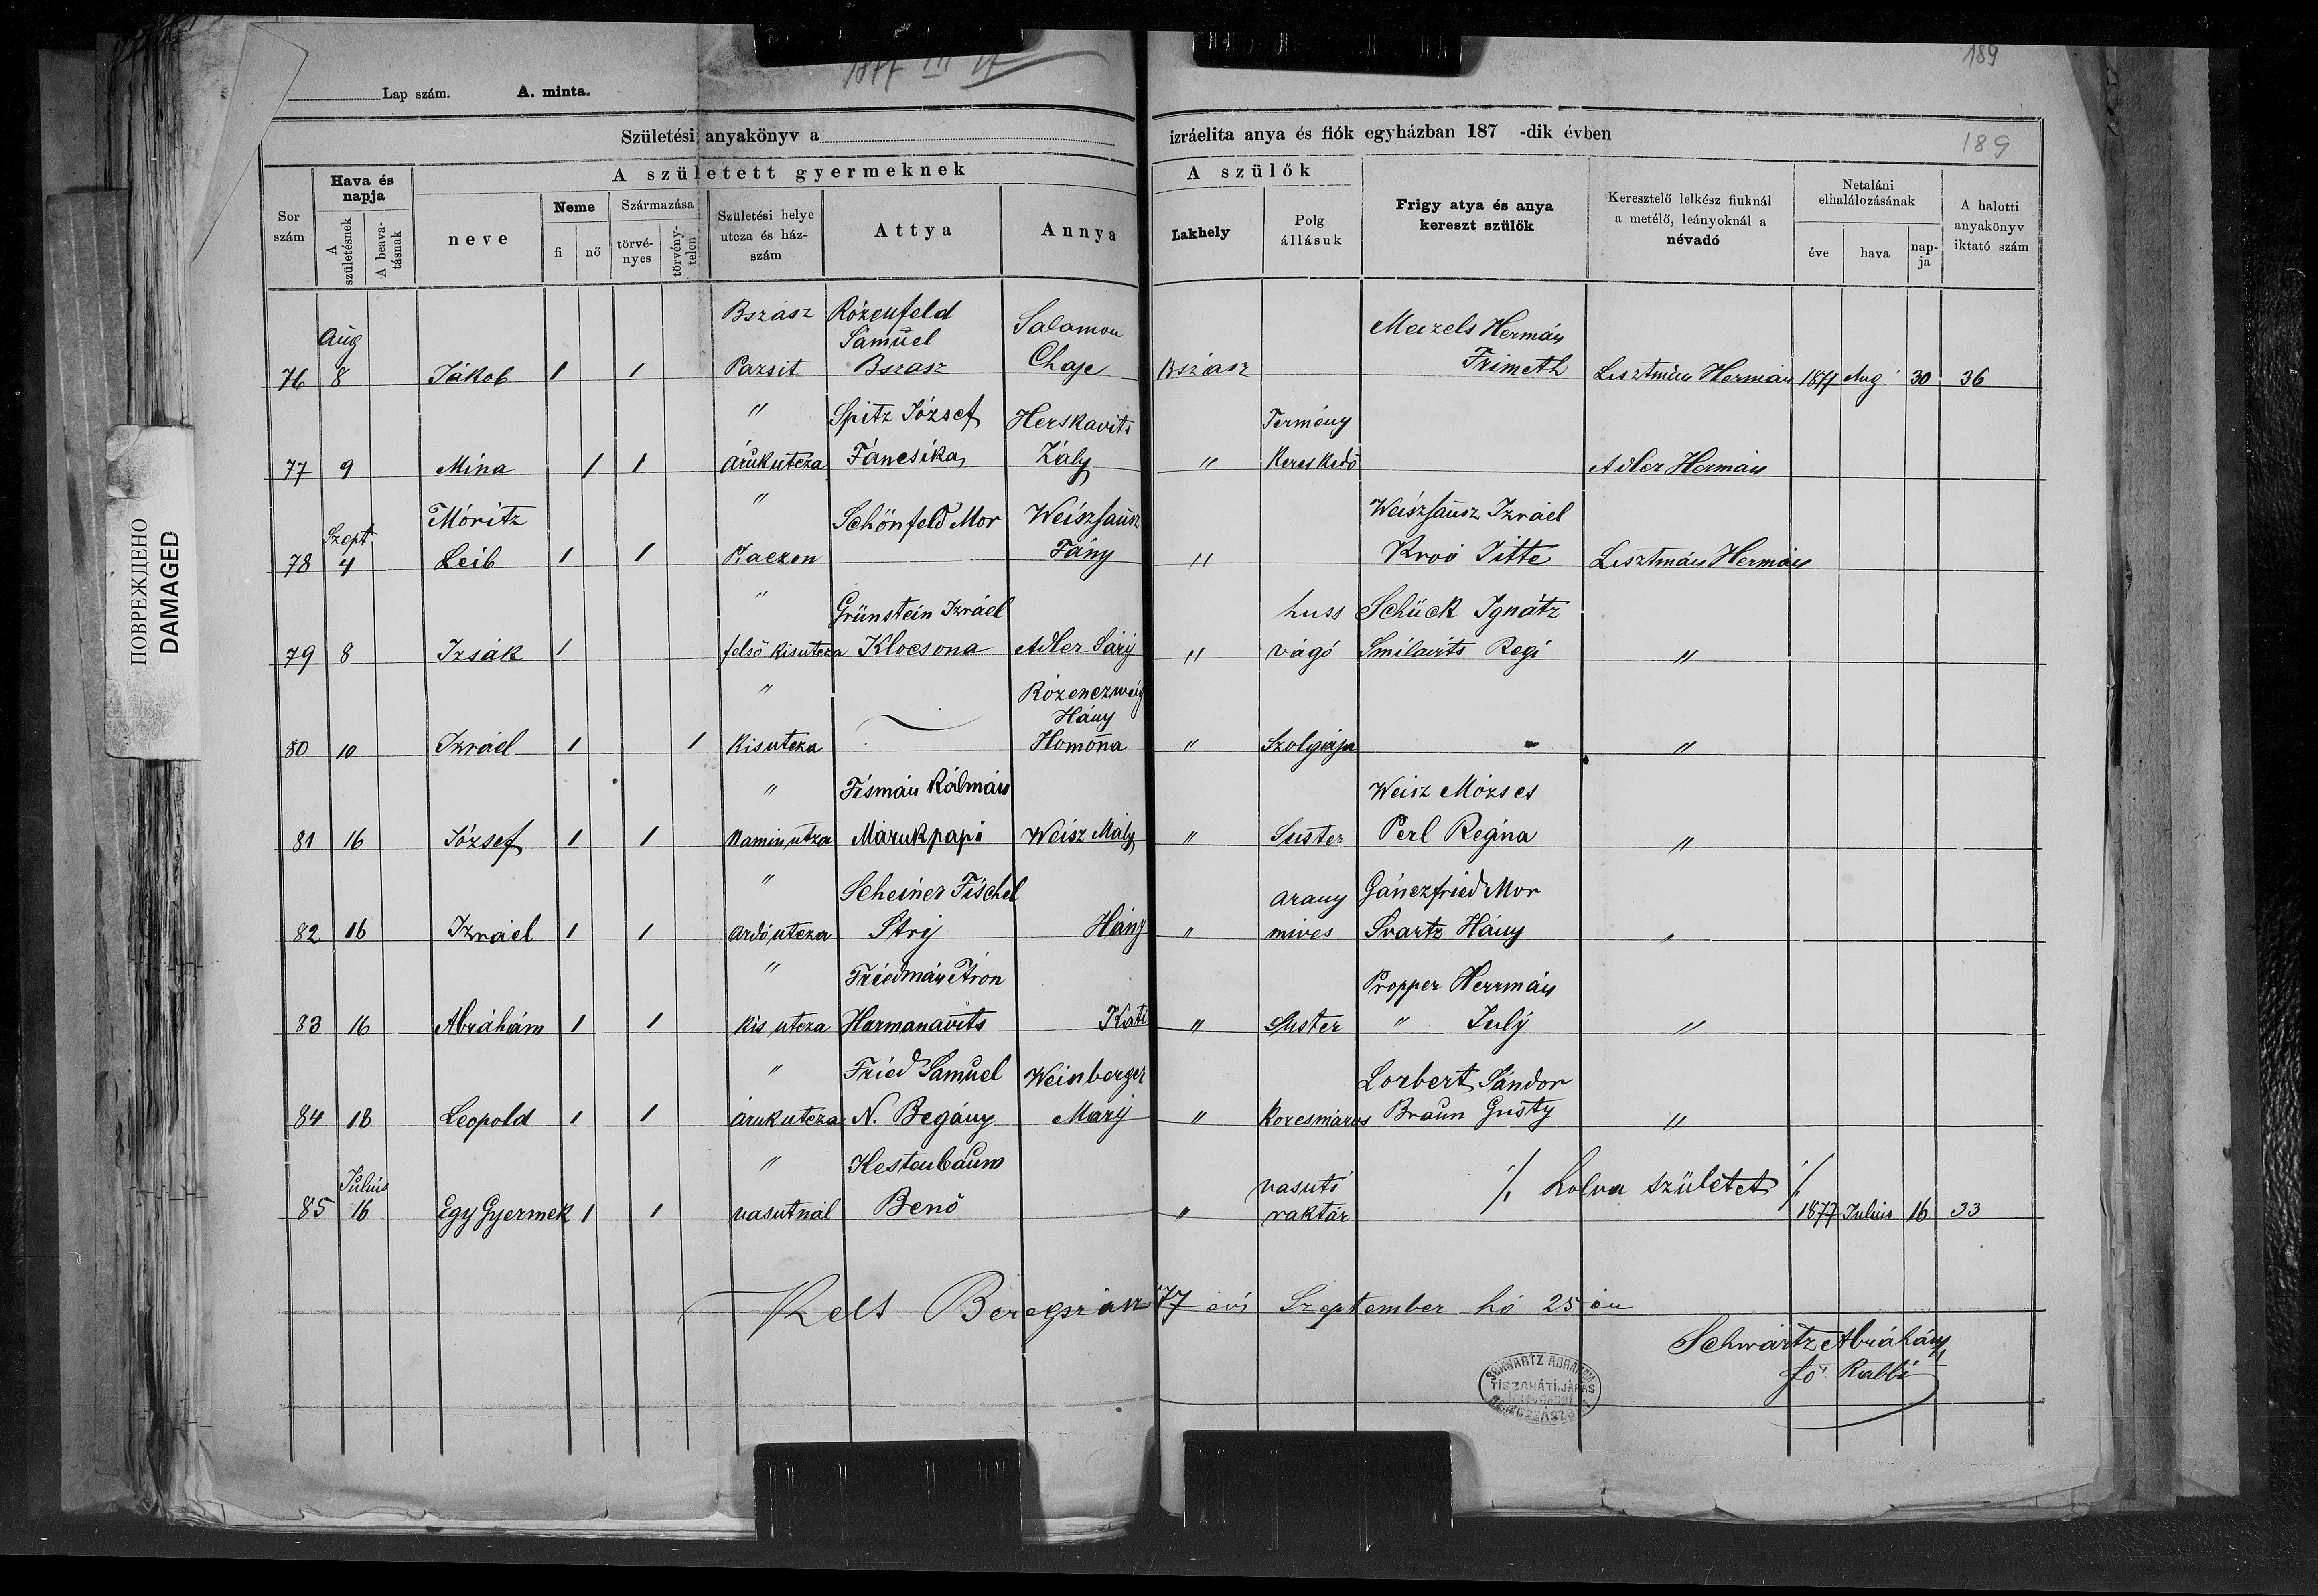 1877 III
189
Lap szám. A. minta.
Születési anyakönyv a izráelita anya és fiók egyházban 187 -dik évben
189
Sor szám
Hava és napja
A születésnek
A beavatásnak
A született gyermeknek
neve
Neme
fi
nő
Származása
törvényes
törvénytelen
Születési helye utcza és házszám
Attya
Annya
A szülők
Lakhely
Polg állásuk
Frigy atya és anya kereszt szülők
Keresztelő lelkész fiuknál a metélő, leányoknál a névadó
Netaláni elhalálozásának
éve
hava
napja
A halotti anyakönyv iktató szám
Bszász Rózenfeld Salamon Mazels Hermán
Aug Sámuel
76 8 Jákob 1 1 Parsit Bszasz Chaje Bszász Frimeth Lisztmán Hermán 1877 Aug 30 36
" Spitz József Herskavits Termény
77 9 Mina 1 1 árukutcza Fancsika Zály " Kereskedö Adler Hermán
" Móritz Schönfeld Mor Weiszhausz Weiszhausz Izráel
Szept
78 4 Leib 1 1 Kaczon Fány " Kroó Jitte Lisztmán Hermán
" Grünstein Izráel huss Schück Ignátz
79 8 Izsák 1 felsö kisutcza Klocsona Adler Sárÿ " vágó Smilavits Regi "
" Rózenczweig
Hány
80 10 Izráel 1 1 Kisutcza Homona " Szolgája "
" Fismán Kálmán Weisz Mózses
81 16 József 1 1 Kaminutza Marukpapi Weisz Mály " Suster Perl Regina "
" Scheiner Fischel arany Gánczfried Mor
82 16 Izráel 1 1 ardóutcza Strÿ Hány " mives Svartz Hány "
" Friedmán Áron Propper Herrmán
83 16 Abrahám 1 1 Kis utcza Hermanavits Kati " Suster " Julÿ "
" Fried Samuel Weinberger Lorbert Sándor
84 18 Leopold 1 1 árukutcza N. Begány Marÿ " Korcsmáros Braun Gusty "
" Kestenbaum
Julius vasuti
85 16 Egy Gyermek 1 1 vasutnál Benö " raktár ./. Holva születet ./. 1877 Julius 16 33
Kelt Beregszász 77 évi Szeptember hó 25 én
Schwartz Abrahám
fö Rabbi
SCHWARTZ ABRAHAM
TISZAHÁTI JÁRÁS
BEREGSZÁSZ
ПОВРЕЖДЕНО
DAMAGED